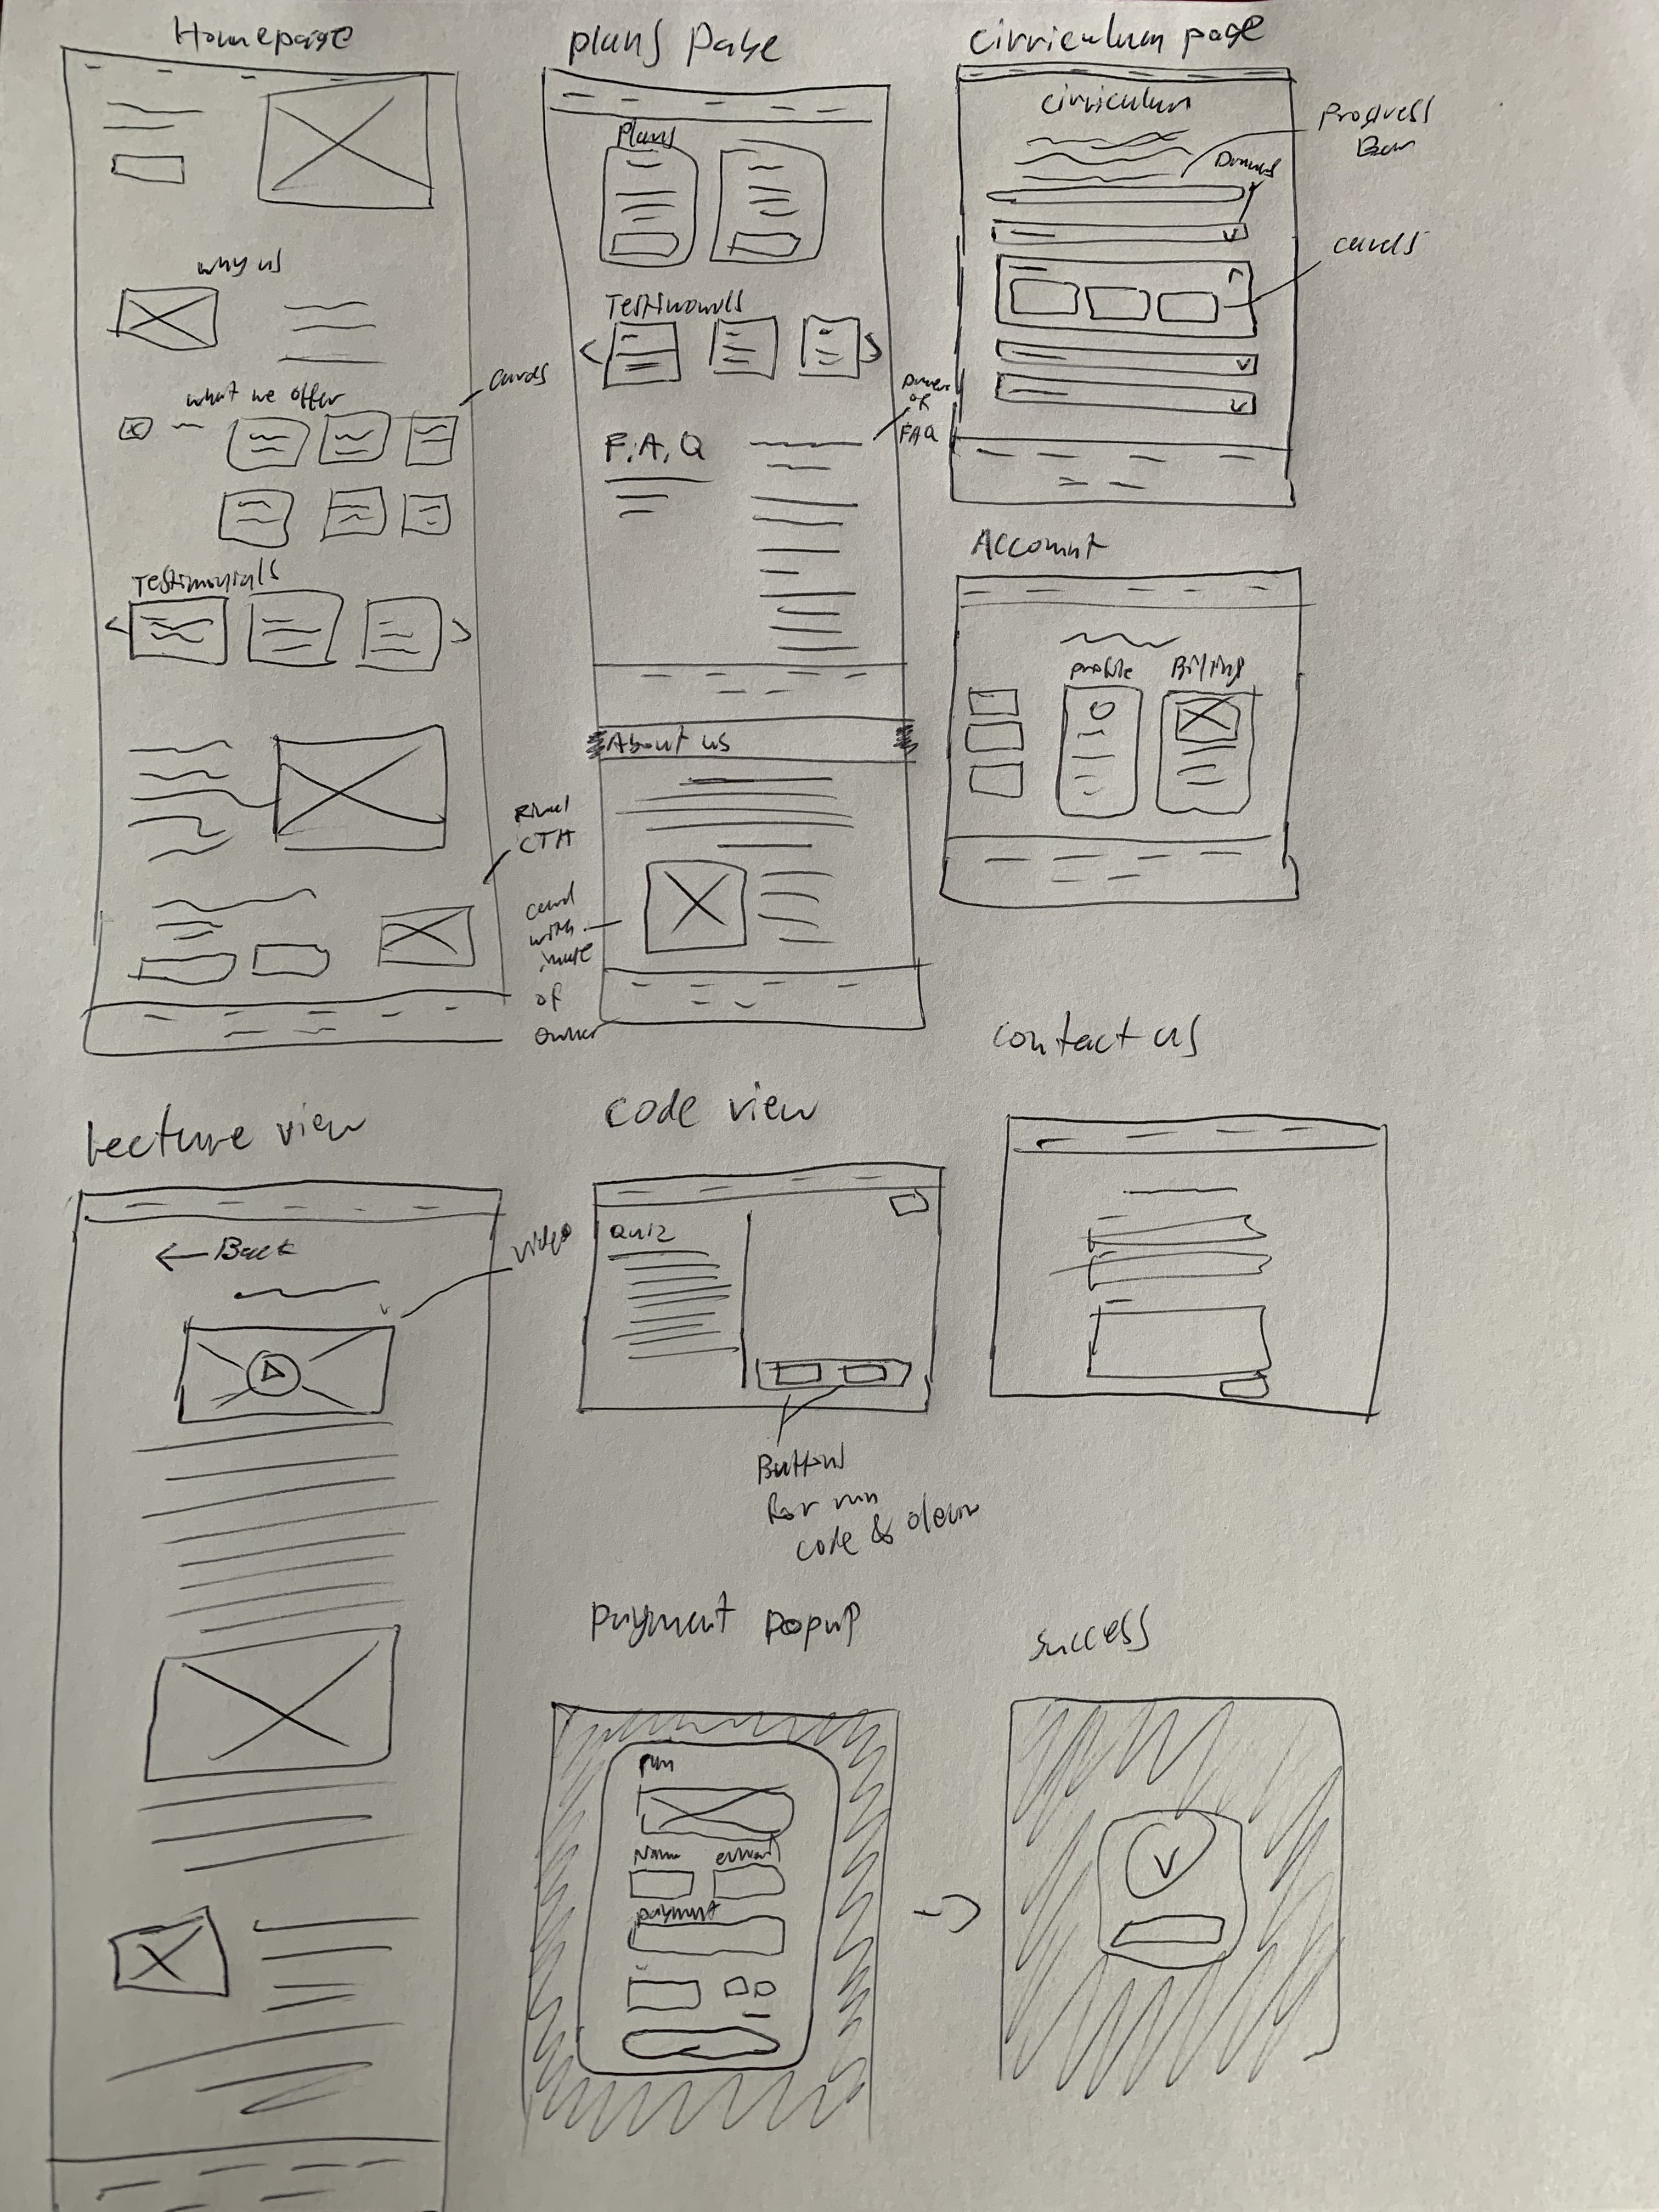 Homepage
why us
what we offer
cards
Testimonials
Final
CTA
plans page
Plans
Testimonials
F.A.Q
of
FAQ
About us
card
with
image
of
owner
cirriculum page
cirriculum
Progress
Bar
cards
Account
profile
Billing
contact us
Lecture view
← Back
video
code view
Quiz
Buttons
for run
code &
payment popup
Name
email
payment
success